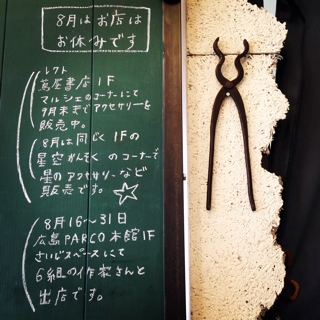 8月はお店は
お休みです
レクト
蔦屋書店 1F
マルシェのコーナーにて
9月末までアクセサリーを
販売中。
8月は同じく 1Fの
星空かんそくのコーナーで
星のアクセサリーなど
販売です。
8月16～31日
広島PARCO本館1F
さいじスペースにて
6組の作家さんと
出店です。